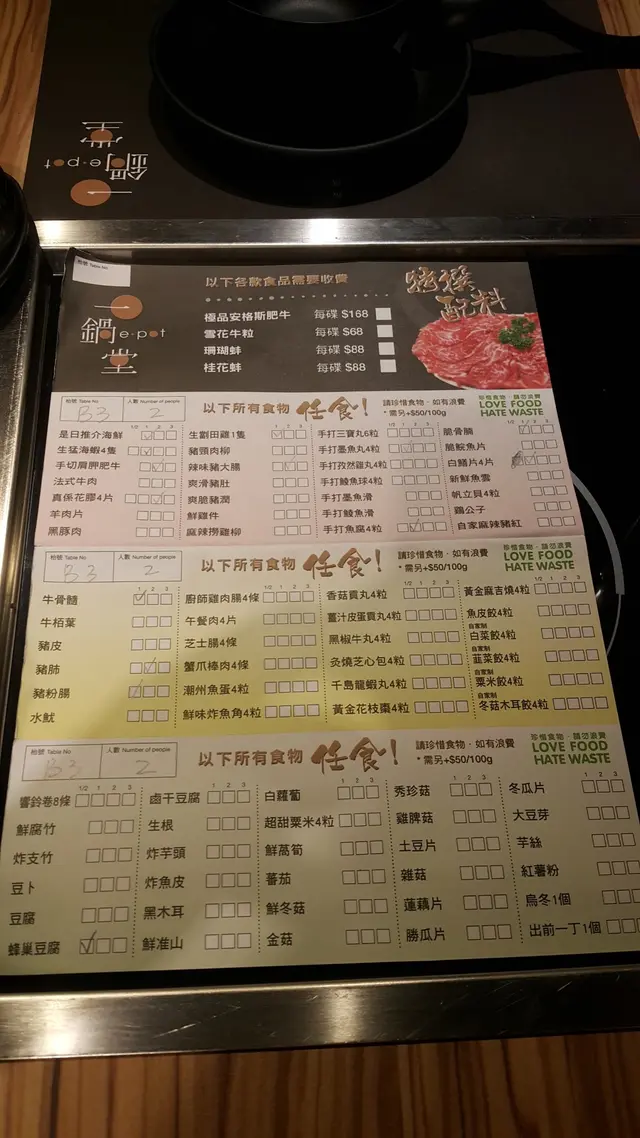 一鍋堂
e·pot
枱號 Table No
以下各款食品需要收費
特撰配料
一鍋堂
e·pot
極品安格斯肥牛 每碟 $168
雪花牛粒 每碟 $68
珊瑚蚌 每碟 $88
桂花蚌 每碟 $88
枱號 Table No
B3
人數 Number of people
2
以下所有食物 任食!
請珍惜食物，如有浪費
* 需另+$50/100g
珍惜食物·請勿浪費
LOVE FOOD
HATE WASTE
1/2 1 2 3
是日推介海鮮
生猛海蝦4隻
手切肩胛肥牛
法式牛肉
真係花膠4片
羊肉片
黑豚肉
1 2 3
生劏田雞1隻
豬頸肉柳
辣味豬大腸
爽滑豬肚
爽脆豬潤
鮮雞件
麻辣撈雞柳
1/2 1 2 3
手打三寶丸6粒
手打墨魚丸4粒
手打孜然雞丸4粒
手打鯪魚球4粒
手打墨魚滑
手打鯪魚滑
手打魚腐4粒
1/2 1 2 3
脆骨腩
脆脘魚片
白鱔片4片
新鮮魚雲
帆立貝4粒
鷄公子
自家麻辣豬紅
枱號 Table No
B3
人數 Number of people
2
以下所有食物 任食!
請珍惜食物·如有浪費
* 需另+$50/100g
珍惜食物·請勿浪費
LOVE FOOD
HATE WASTE
1 2 3
牛骨髓
牛栢葉
豬皮
豬肺
豬粉腸
水魷
1/2 1 2 3
廚師雞肉腸4條
午餐肉4片
芝士腸4條
蟹爪棒肉4條
潮州魚蛋4粒
鮮味炸魚角4粒
1/2 1 2 3
香菇貢丸4粒
薑汁皮蛋貢丸4粒
黑椒牛丸4粒
灸燒芝心包4粒
千島龍蝦丸4粒
黃金花枝棗4粒
1/2 1 2 3
黃金麻吉燒4粒
魚皮餃4粒
自家制
白菜餃4粒
自家制
韮菜餃4粒
自家制
粟米餃4粒
自家制
冬菇木耳餃4粒
枱號 Table No
B3
人數 Number of people
2
以下所有食物 任食!
請珍惜食物·如有浪費
* 需另+$50/100g
珍惜食物·請勿浪費
LOVE FOOD
HATE WASTE
1/2 1 2 3
響鈴卷8條
鮮腐竹
炸支竹
豆卜
豆腐
蜂巢豆腐
1 2 3
鹵干豆腐
生根
炸芋頭
炸魚皮
黑木耳
鮮准山
1 2 3
白蘿蔔
超甜粟米4粒
鮮萵筍
蕃茄
鮮冬菇
金菇
1 2 3
秀珍菇
雞脾菇
土豆片
雜菇
蓮藕片
勝瓜片
1 2 3
冬瓜片
大豆芽
芋絲
紅薯粉
烏冬1個
出前一丁1個